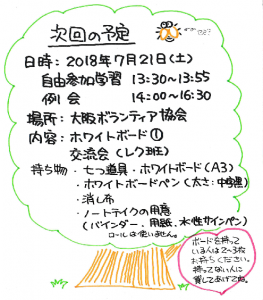 次回の予定
日時：2018年7月21日(土)
自由参加学習 13:30～13:55
例会 14:00～16:30
場所：大阪ボランティア協会
内容：ホワイトボード①
交流会(レク班)
持ち物・七つ道具・ホワイトボード(A3)
・ホワイトボードペン(太さ:中字黒)
・消し布
・ノートテイクの用意
(バインダー、用紙、水性サインペン)
ロールは使いません。
ボードを持って
いる人は2～3枚
お持ちください。
持ってない人に
貸してあげてね。